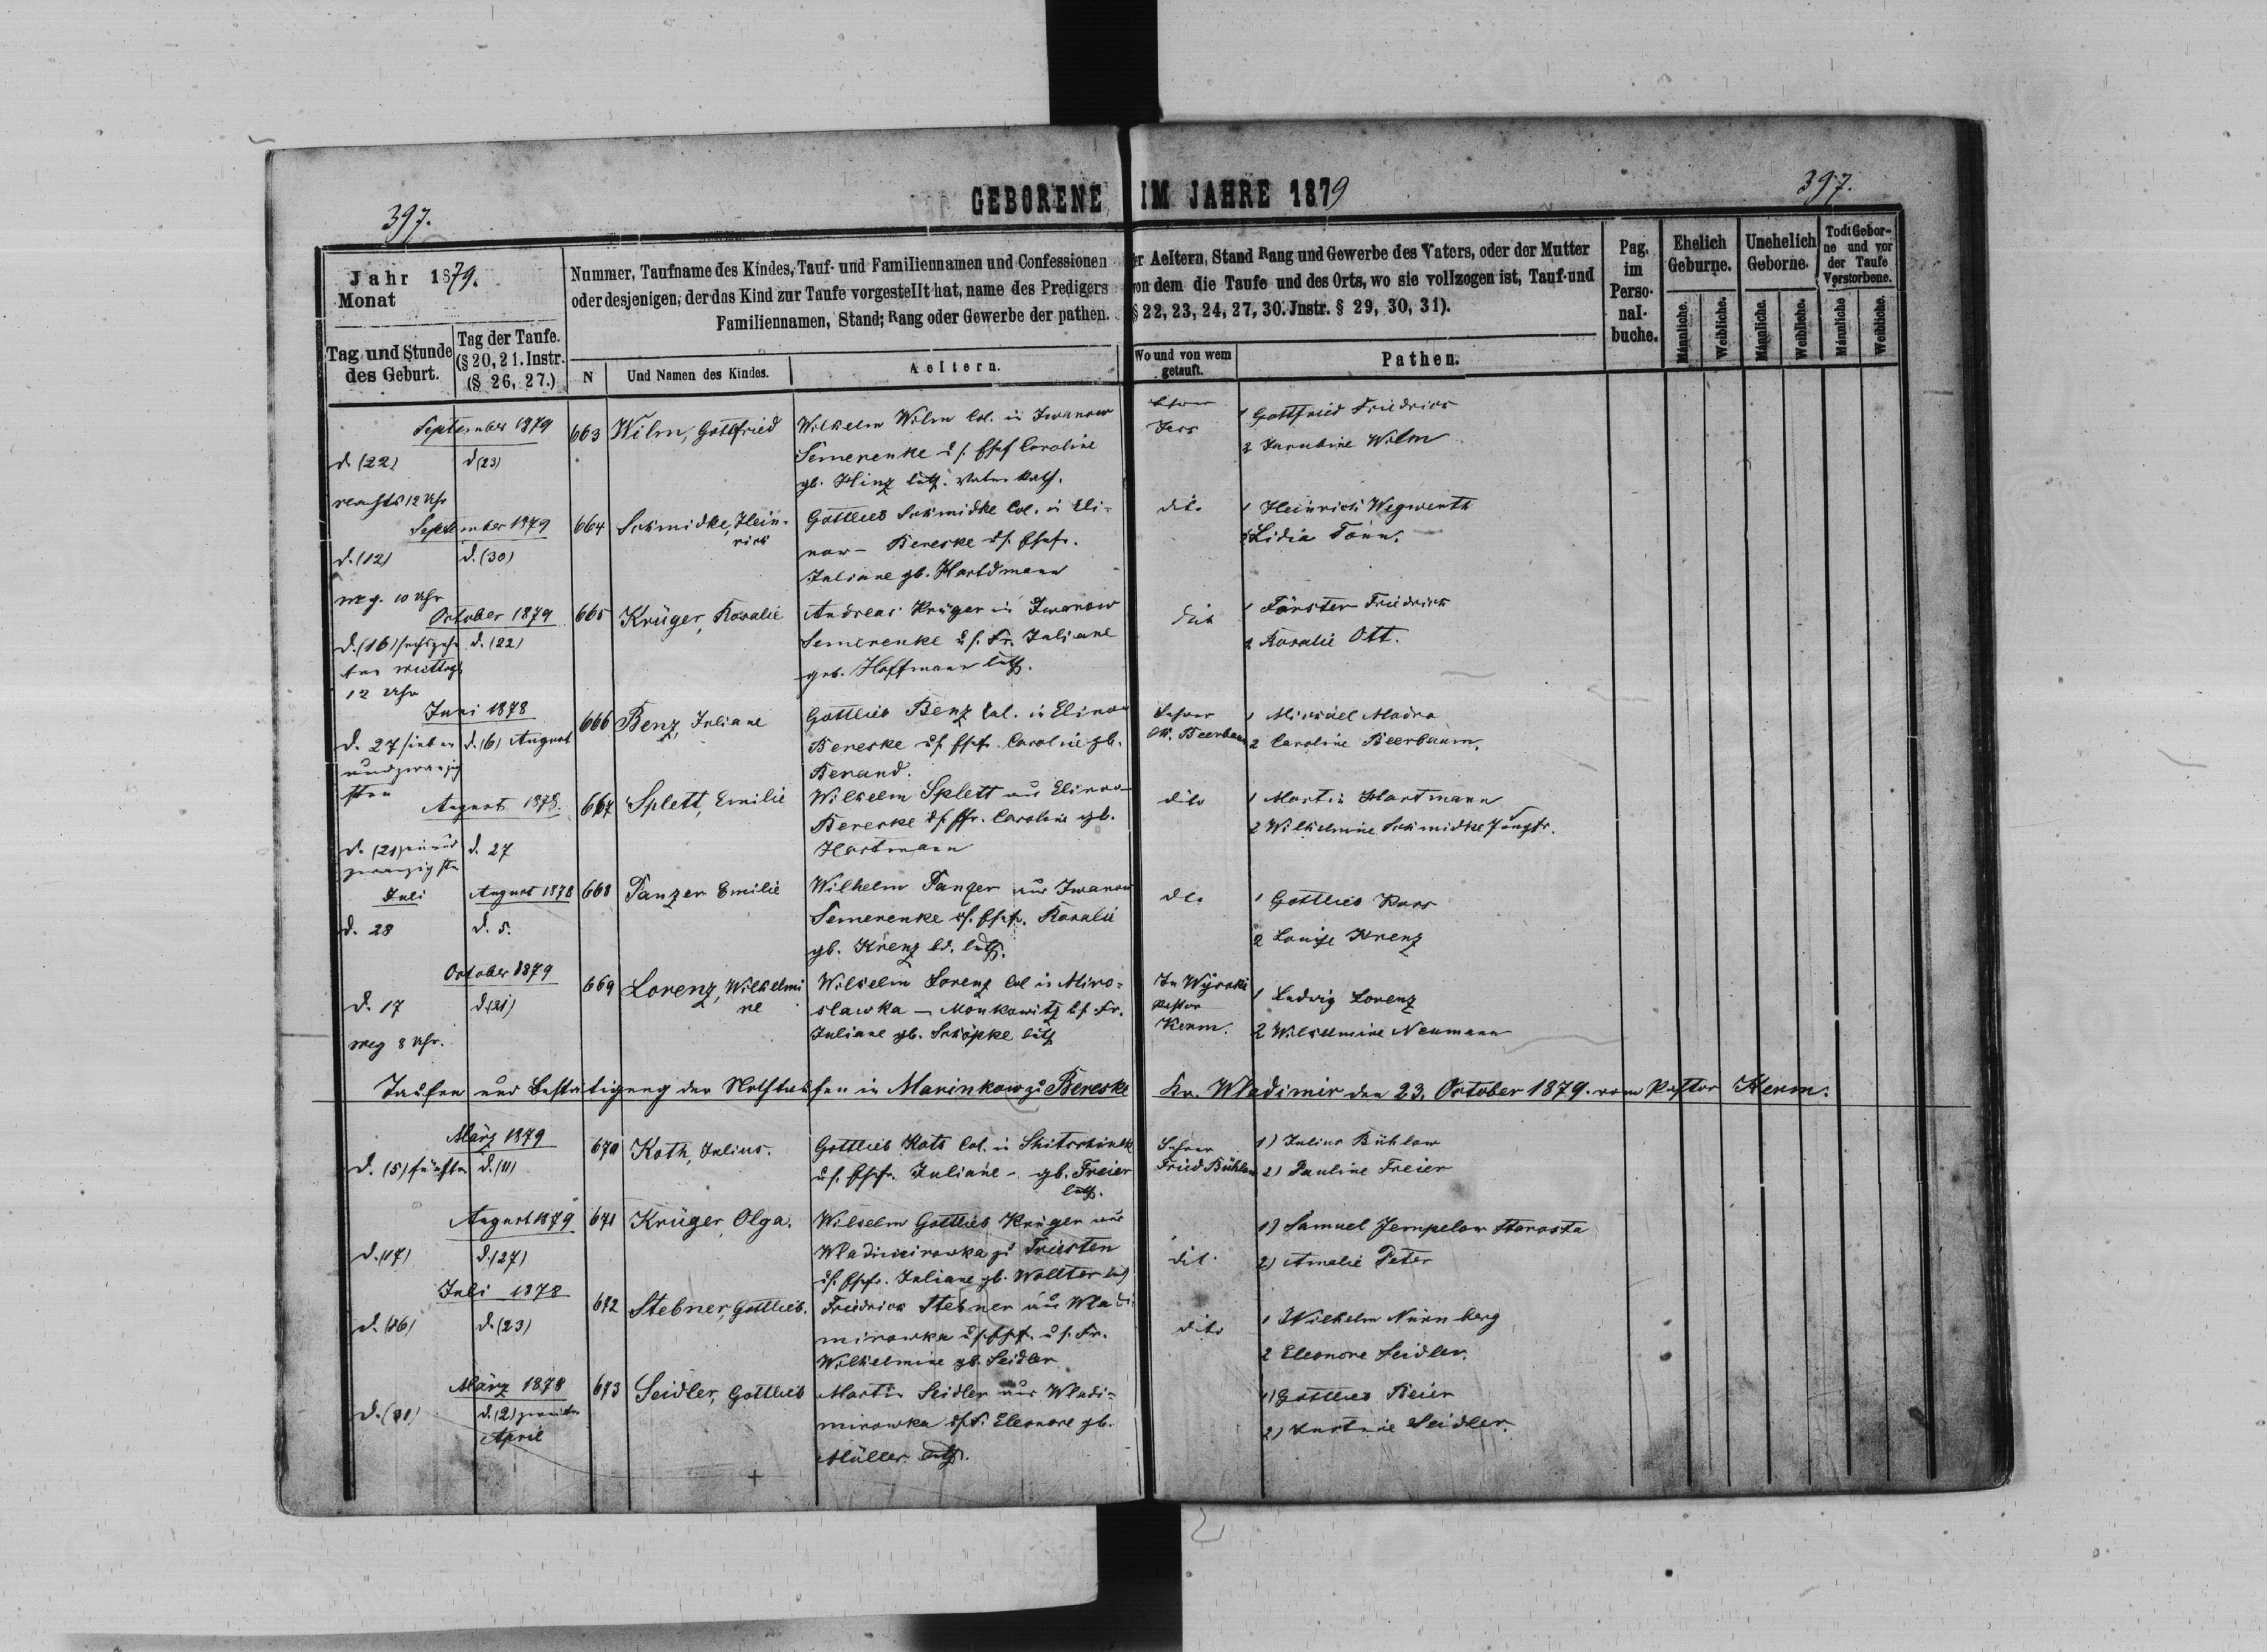 GEBORENE IM JAHRE 1879
397.
397.
Jahr 1879.
Monat
Tag und Stunde des Geburt.
Tag der Taufe. (§ 20, 21. Instr. (§ 26, 27.)
Nummer, Taufname des Kindes, Tauf- und Familiennamen und Confessionen
oder desjenigen, der das Kind zur Taufe vorgestellt hat, name des Predigers
Familiennamen, Stand; Rang oder Gewerbe der pathen.
er Aeltern, Stand Rang und Gewerbe des Vaters, oder der Mutter
von dem die Taufe und des Orts, wo sie vollzogen ist, Tauf-und
§ 22, 23, 24, 27, 30. Jnstr. § 29, 30, 31).
N
Und Namen des Kindes.
Aeltern.
Wo und von wem getauft.
Pathen.
Pag. im Perso- nal- buche.
Ehelich Geburne.
Unehelich Geborne.
Todt Gebor- ne und vor der Taufe Verstorbene.
Männliche. Weibliche. Männliche. Weibliche. Männliche Weibliche.
September 1879
d. (22) d (23)
nachts 12 Uhr
663 Wilm, Gottfried
Wilhelm Wilm Col. in Iwanow
Semerenke u s. Ehef Caroline
gb. Hinz luth.
1 Gottfried Friedrich
2 Wilm
September 1879
d. (12) d. (30)
10 Uhr
664 Schmidke, Hein-
rich
Gottlieb Schmidke Col. in Eli-
now - Bereske u s. Ehefr.
Juliane gb. Hartdmann
dito
1 Heinrich Wegwerth
2 Lidia Tonn.
October 1879
d. (16) sechszehn d. (22)
ten Mittags
12 Uhr
665 Krüger, Rosalie
Andreas Krüger in Iwanow
Semerenke u s. Fr. Juliane
geb. Hoffmann luth.
dito
1 Förster Friedrich
2 Rosalie Ott.
Juni 1878
d. 27 sieben d. (6) August
undzwanzig
sten
666 Benz, Juliane
Gottlieb Benz Col. in Elinow
Bereske u s. Ehefr. Caroline gb.
Berand.
Lehrer
Beerbaum
1 Michael
2 Caroline Beerbaum.
August 1878.
d. (21) einund d. 27
zwanzigsten
667 Splett, Emilie
Wilhelm Splett aus Elinow
Bereske u s. Ehfr. Caroline gb.
Hartmann
dito
1 Martin Hartmann
2 Wilhelmine Schmidke Jungfr.
Juli August 1878
d. 28 d. 5.
668 Panzer Emilie
Wilhelm Panzer aus Iwanow
Semerenke u s. Ehefr. Rosalie
gb. Krenz bd. luth.
dto
1 Gottlieb
2 Louise Krenz
October 1879
d. 17 d. (21)
8 Uhr.
669 Lorenz, Wilhelmi
ne
Wilhelm Lorenz Col in Miro-
slawka - Monkowitz u s. Fr.
Juliane gb. Schöpke luth
In Wÿsoki
Pastor
Kerm.
1 Ludwig Lorenz
2 Wilhelmine Neumann
Taufen und Bestätigung der Nothtaufen in Marinkow zu Bereske Kr. Wladimir den 23. October 1879. vom Pastor Kerm.
März 1879
d. (5) fünften d. (11)
670 Koth, Julius.
Gottlieb Koth Col. in
u s. Ehefr. Juliane - gb. Freier
luth.
Lehrer
Fried Bühlow
1) Julius Bühlow
2) Pauline Freier
August 1879
d. (17) d. (27)
671 Krüger, Olga.
Wilhelm Gottlieb Krüger aus
Wladimirowka zu Tristen
u s. Ehefr. Juliane gb. Wollter luth
dit.
1) Samuel Jempelow Starosta
2) Amalie Peter
Juli 1878
d. (16) d. (23)
672 Stebner, Gottlieb.
Friedrich Stebner aus Wladi-
mirowka u s. Fr.
Wilhelmine gb. Seidler
dito
1 Wilhelm Nürnberg
2 Eleonore Seidler.
März 1878
d. (31) d. (2) zweiten
April
673 Seidler, Gottlieb
Martin Seidler aus Wladi-
mirowka u s. F. Eleonore gb.
Müller. luth.
1) Gottlieb Beier
2) Seidler.